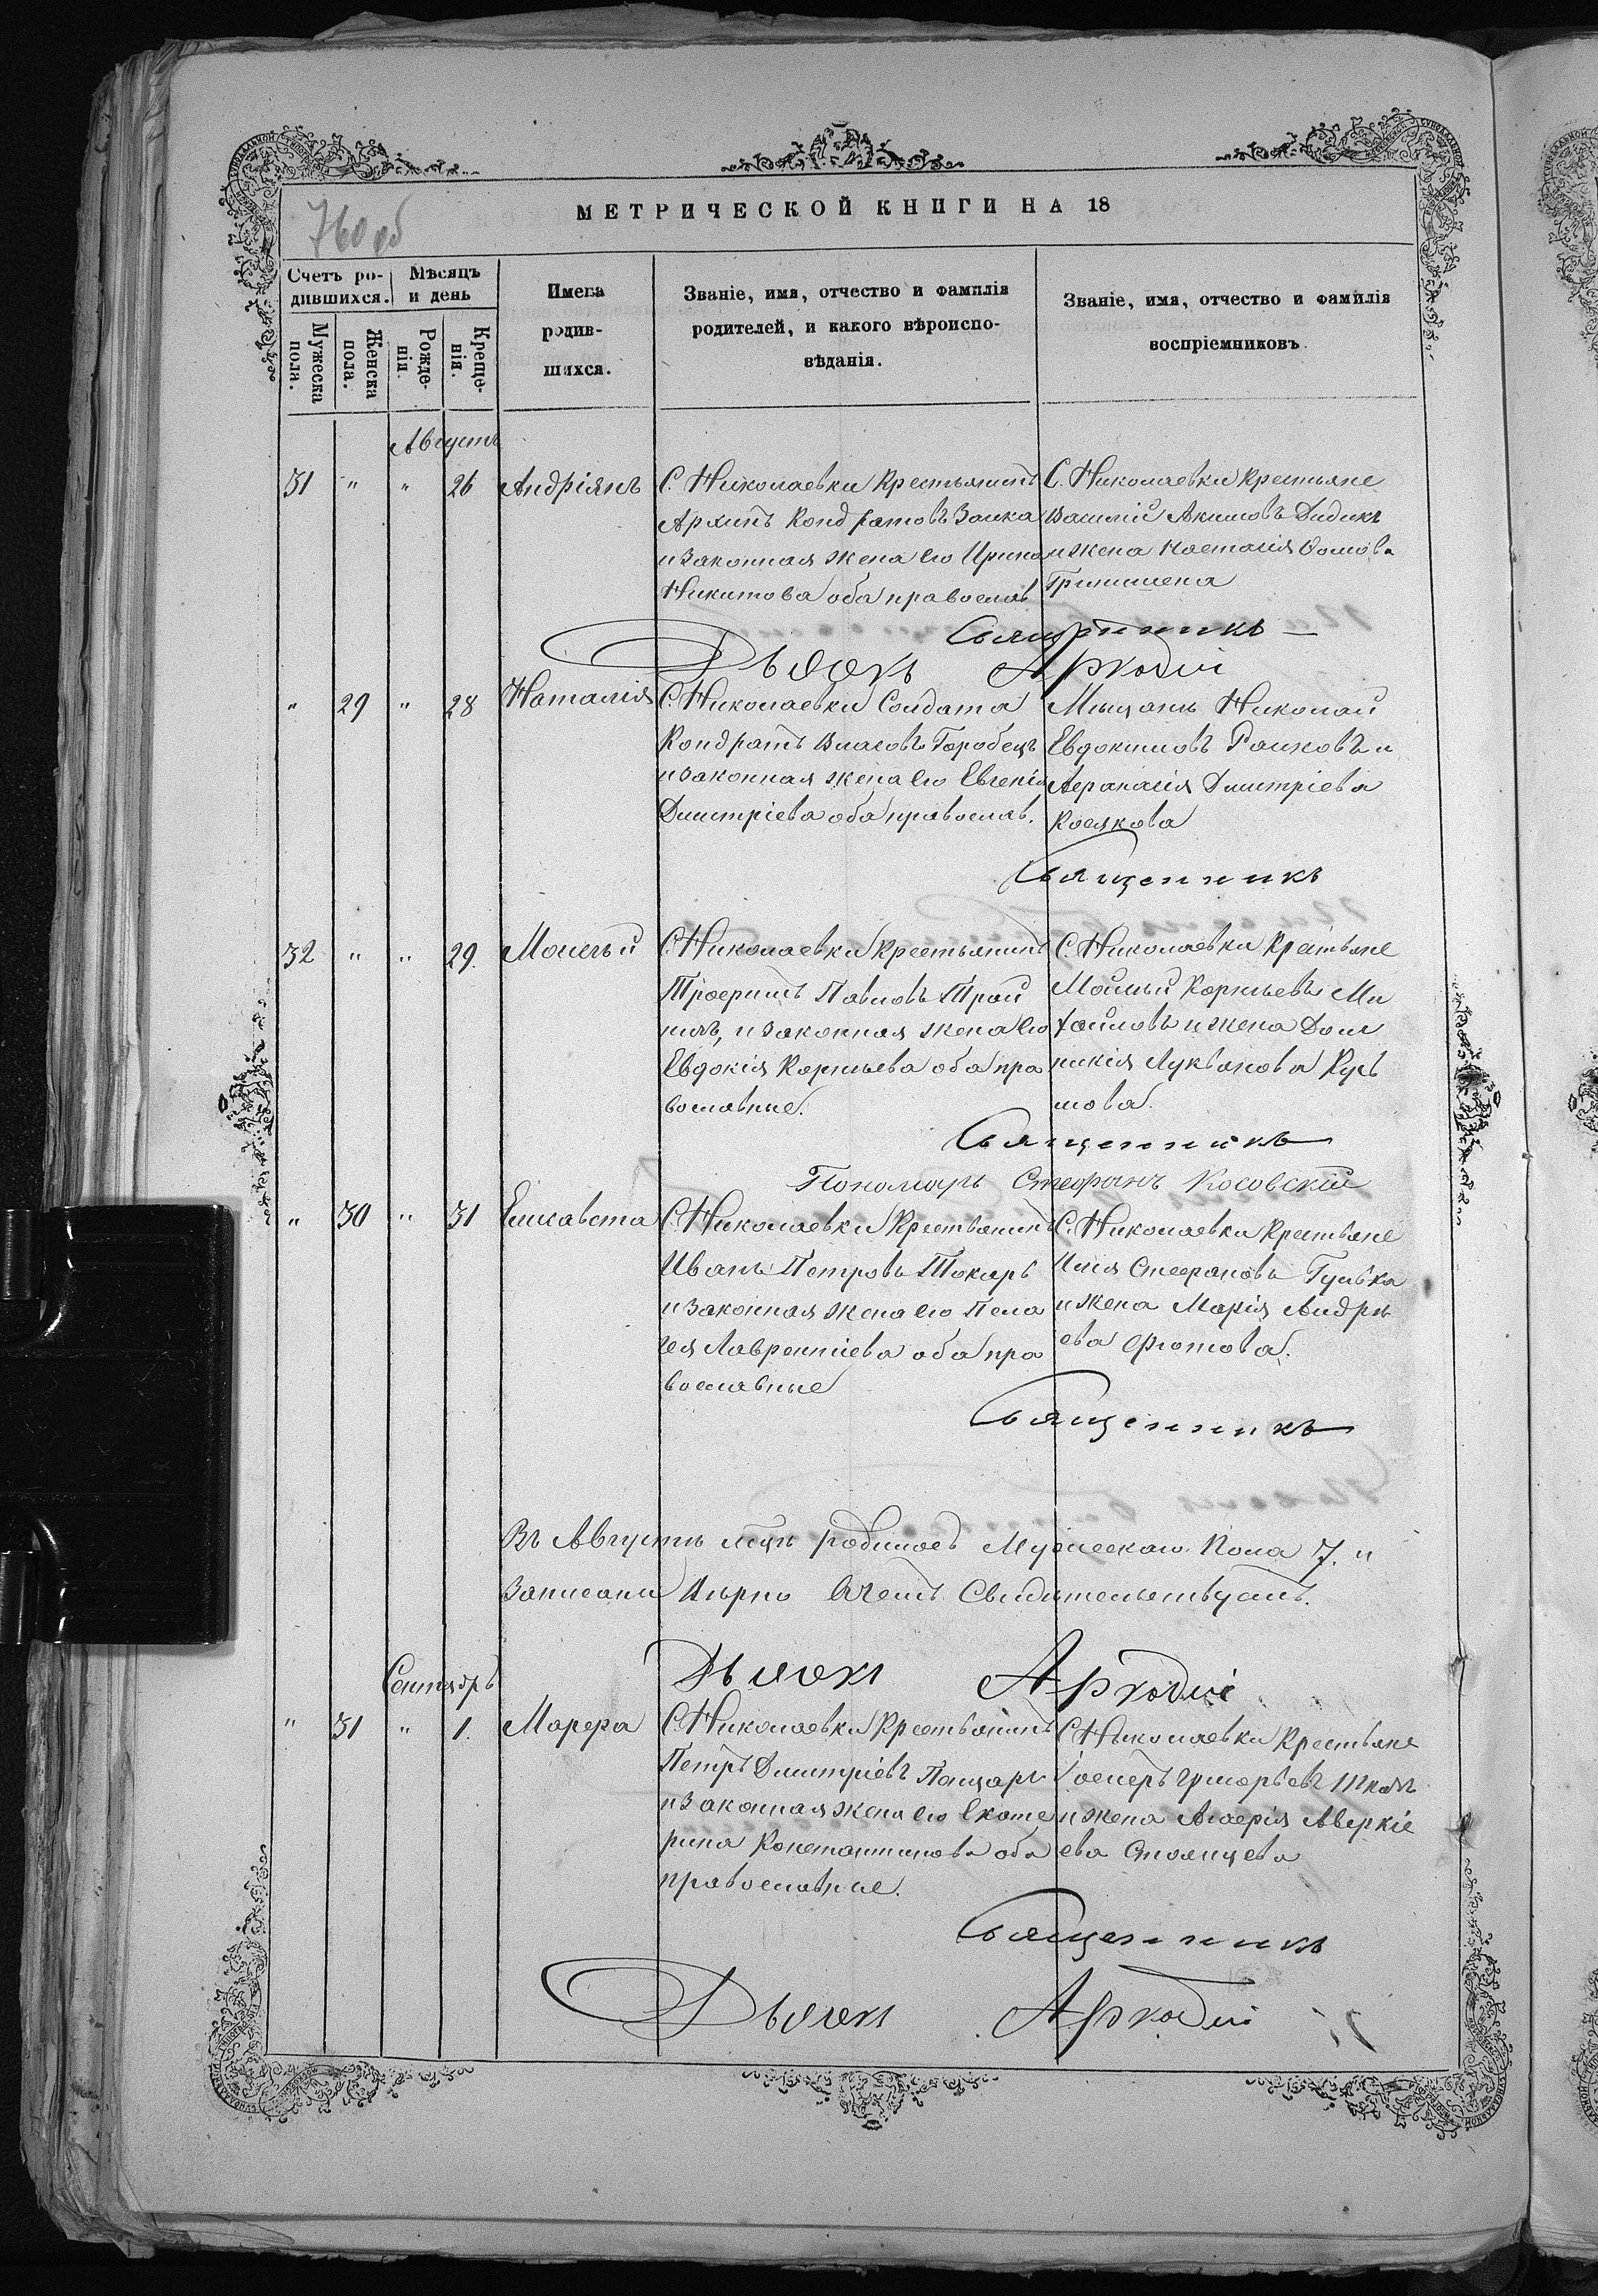 МЕТРИЧЕСКОЙ КНИГИ НА 18
760 об
Счетъ ро-
дившихся.
Мѣсяцъ
и день
Мужеска
пола.
Женска
пола.
Рожде-
нія.
Креще-
нія.
Имена
родив-
шихся.
Званіе, имя, отчество и фамилія
родителей, и какого вѣроиспо-
вѣданія.
Званіе, имя, отчество и фамилія
воспріемниковъ.
Августъ
31 " " 26 Андріянъ
С. Николаевки Крестьянинъ
Архипъ Кондратовъ Заика
и законная жена его Ирина
Никитова оба православ
С. Николаевки Крестьяне
Василій Акимовъ Дидикъ
и жена Настасія Ѳомова
Гринишена
Священникъ
Дьячокъ Аркадій
" 29 " 28 Наталія
С. Николаевки Солдата
Кондратъ Власовъ Горобецъ
и законная жена его Евгенія
Дмитріева оба православ.
Мещанъ Николай
Евдокимовъ Рашковъ и
Афанасія Дмитріева
Косякова
Священникъ
32 " " 29. Моисей
С. Николаевки Крестьянинъ
Трофимъ Павловъ Трай
, и законная жена его
Евдокія Корнѣева оба пра
вославные.
С. Николаевки Крестьяне
Моисей Корнѣевъ Ми
хайловъ и жена Дом
никія Лукьянова Куз
мова.
Священникъ
Пономарь Стефанъ Косовскій
" 30 " 31 Елисавета
С. Николаевки Крестьянинъ
Иванъ Петровъ Токарь
и законная жена его Пела
гея Лаврентіева оба пра
вославные
С. Николаевки Крестьяне
Илія Стефановъ Гулька
и жена Марія Андрѣ
ева Фотова.
Священникъ
Въ Августѣ мцѣ родилось Мужескаго Пола 7. и
Записани Вѣрно Въчемъ Свидѣтельствуемъ.
Дьячокъ Аркадій
Сентябрь
" 31 " 1. Марфа
С. Николаевки Крестьянинъ
Петръ Дмитріевъ Пащарь
и законная жена его Екате
рина Константинова оба
православные.
С. Николаевки Крестьяне
Іосифъ Григорьевъ
и жена Агафія Аверкіе
ева Стоянцева
Священникъ
Дьячокъ Аркадій